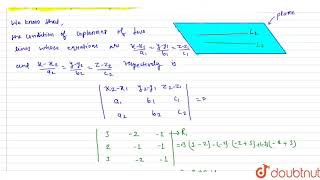 We know that,
the condition of coplanar of two
lines whose equations are x-x₁/a₁ = y-y₁/b₁ = z-z₁/c₁
and x-x₂/a₂ = y-y₂/b₂ = z-z₂/c₂ respectively is
plane
L₂
L₂
| x₂-x₁ y₂-y₁ z₂-z₁ |
| a₁ b₁ c₁ | = 0
| a₂ b₂ c₂ |
| 3 -2 -1 | → R₁
| 2 -1 -1 |
| 3 -2 -1 |
doubtnut